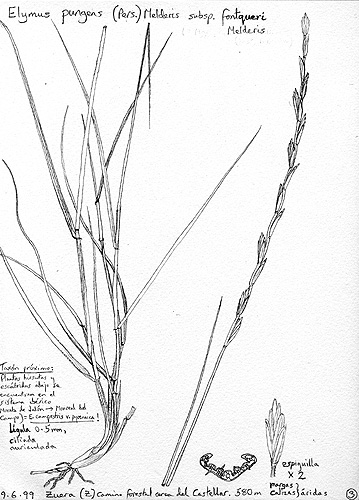 Elymus pungens (Pers.) Melderis subsp. fontqueri
Melderis
Taxón próximo:
Plantas hirsutas y
escábridas abajo se
encuentran en el
sistema ibérico
Morata de Jalón → Monreal del
Campo) = E. campestris v. pyrenaica!
Lígula 0-5mm,
ciliada
auriculada
espiguilla
x 2
9.6.99 Zuara (Z) Camino forestal cerca del Castellar. 580m
glumas
áridas